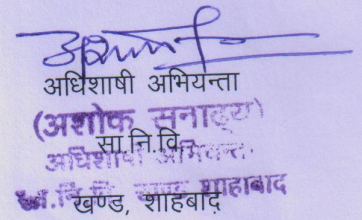 अधिशाषी अभियन्ता
(अशोक सनाढ्य)
सा.नि.वि.
अधिशाषी अभियन्ता
सा.नि.वि. खण्ड शाहाबाद
खण्ड, शाहबाद